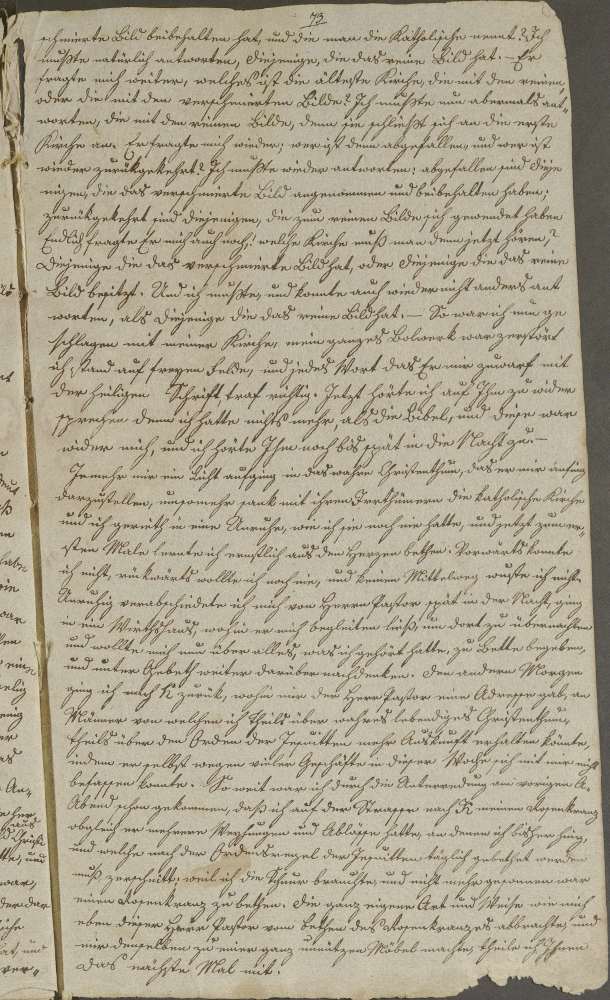 73
schmierte Bild beibehalten hat, und die man die Katholische nennt? Ich
mußte natürlich antworten, diejenige, die das reine Bild hat. – Er
fragte mich weiter, welches ist die älteste Kirche, die mit dem reinen,
oder die mit dem verschmierten Bilde? Ich mußte nun abermals ant-
worten, die mit dem reinen Bilde, denn sie schließt sich an die erste
Kirche an. Er fragte mich wieder; wer ist denn abgefallen, und wer ist
wieder zurückgekehrt? Ich mußte wieder antworten: abgefallen sind dieje
nigen, die das verschmierte Bild angenommen und beibehalten haben;
zurückgekehrt sind diejenigen, die zum reinen Bilde sich gewendet haben
Endlich fragte Er mich auch noch: welche Kirche muß man denn jetzt hören,?
Diejenige die das verschmierte Bild hat, oder diejenige die das reine
Bild besitzt. Und ich mußte, und konnte auch wieder nicht anders ant
worten, als diejenige die das reine Bild hat. – So war ich nun ge
schlagen mit meiner Kirche, mein ganzes Bolwerk war zerstört
ich stand auf freyem Felde, und jedes Wort das Er mir zuwarf mit
der heiligen Schrift traf richtig. Jetzt hörte ich auf Ihm zu wider
sprechen denn ich hatte nichts mehr, als die Bibel, und diese war
wider mich, und ich hörte Ihm noch bis spät in die Nacht zu. –
Je mehr mir ein Licht aufging in das wahre Christenthum, das er mir anfing
darzustellen, umsomehr sank mit ihren Irrthümern die katholische Kirche
und ich gerieth in eine Unruhe, wie ich sie noch nie hatte, und jetzt zum er-
sten Male lernte ich ernstlich aus dem Herzen bethen. Vorwärts konnte
ich nicht, rükwärts wollte ich noch nie, und keinen Mittelweg wußte ich nicht.
Unruhig verabschiedete ich mich von Herrn Pastor spät in der Nacht, ging
in ein Wirthshaus, wohin er mich begleiten ließ, um dort zu übernachten
und wollte mich nun über alles, was ich gehört hatte, zu Bette begeben,
und unter Gebeth weiter darüber nachdenken. Den andern Morgen
ging ich nach K zurük, wohin mir der Herr Pastor eine Adresse gab, an
Männer von welchen ich theils über wahres lebendiges Christenthum,
theils über den Orden der Jesuitten mehr Auskunft erhalten könnte,
indem er selbst wegen vieler Geschäfte in dieser Woche sich mit mir nicht
befassen konnte. So weit war ich durch die Unterredung am vorigen A-
Abend schon gekommen, daß ich auf der Strasse nach K meinen Rosenkranz
obgleich er mehrere Weyhungen und Ablässe hatte, an denen ich bisher hing,
und welche nach der Ordensregel der Jesuitten täglich gebethet werden
muß zerschnitt; weil ich die Schnur brauchte, und nicht mehr gesonnen war
einen Rosenkranz zu bethen. Die ganz eigene Art und Weise wie mich
eben dieser Herr Pastor vom Bethen des Rosenkranzes abbrachte, und
mir denselben zu einer ganz unnützen Möbel machte, theile ich Ihnen
das nächste Mal mit.